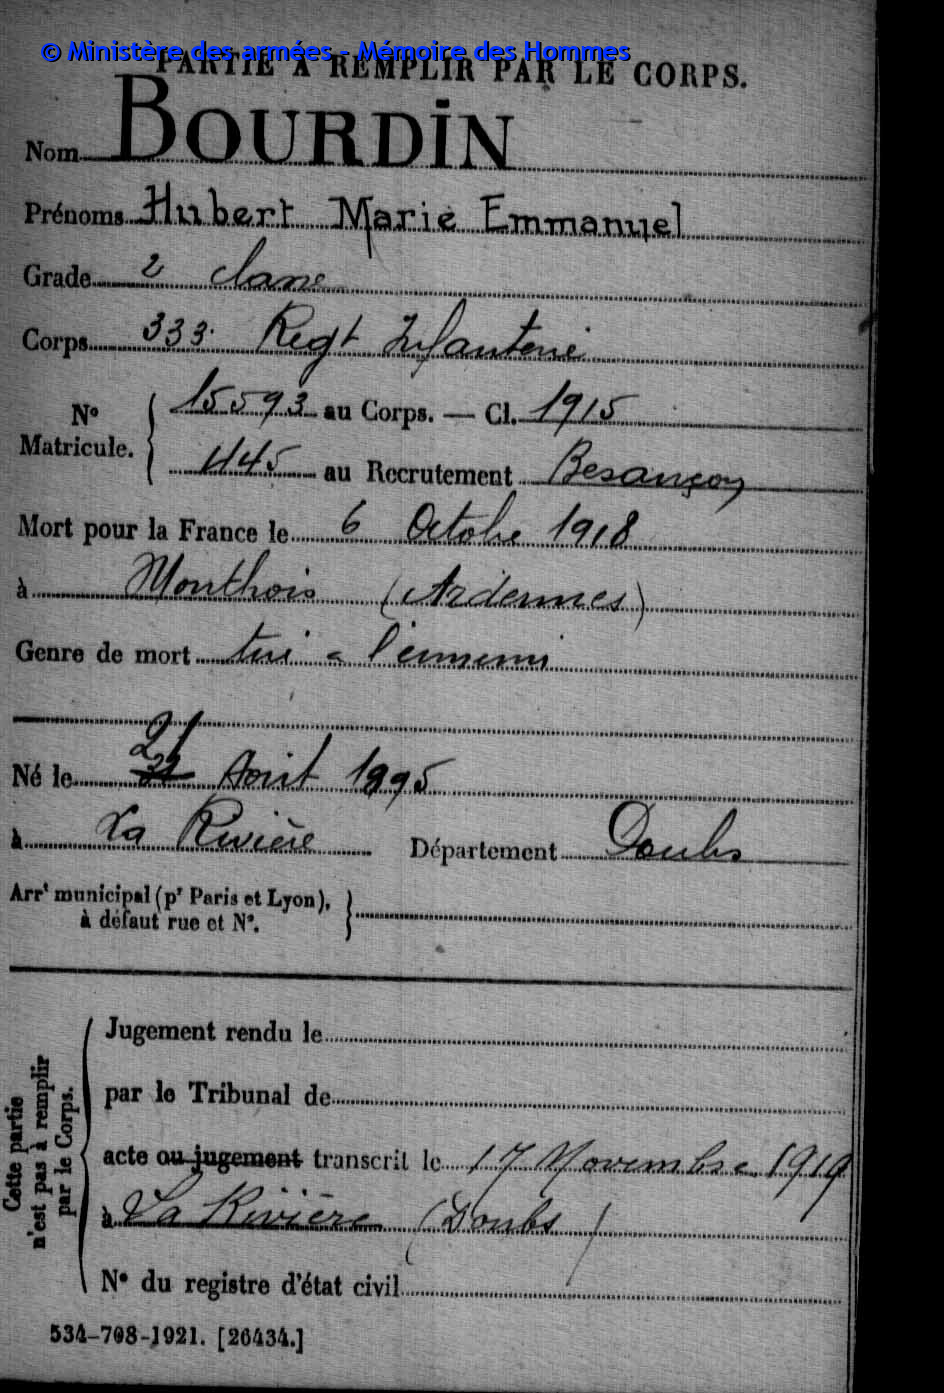 © Ministère des armées - Mémoire des Hommes
PARTIE À REMPLIR PAR LE CORPS.
Nom BOURDIN
Prénoms Hubert Marie Emmanuel
Grade 2 classe
Corps 333. Regt Infanterie
N° Matricule. 15593 au Corps. — Cl. 1915
445 au Recrutement Besançon
Mort pour la France le 6 Octobre 1918
à Monthois (Ardennes)
Genre de mort tué à l'ennemi
Né le 21 Août 1895
à La Rivière Département Doubs
Arrt municipal (pr Paris et Lyon),
à défaut rue et N°.
Cette partie n'est pas à remplir par le Corps.
Jugement rendu le
par le Tribunal de
acte ou jugement transcrit le 17 Novembre 1919
à La Rivière (Doubs)
N° du registre d'état civil
534-708-1921. [26434.]